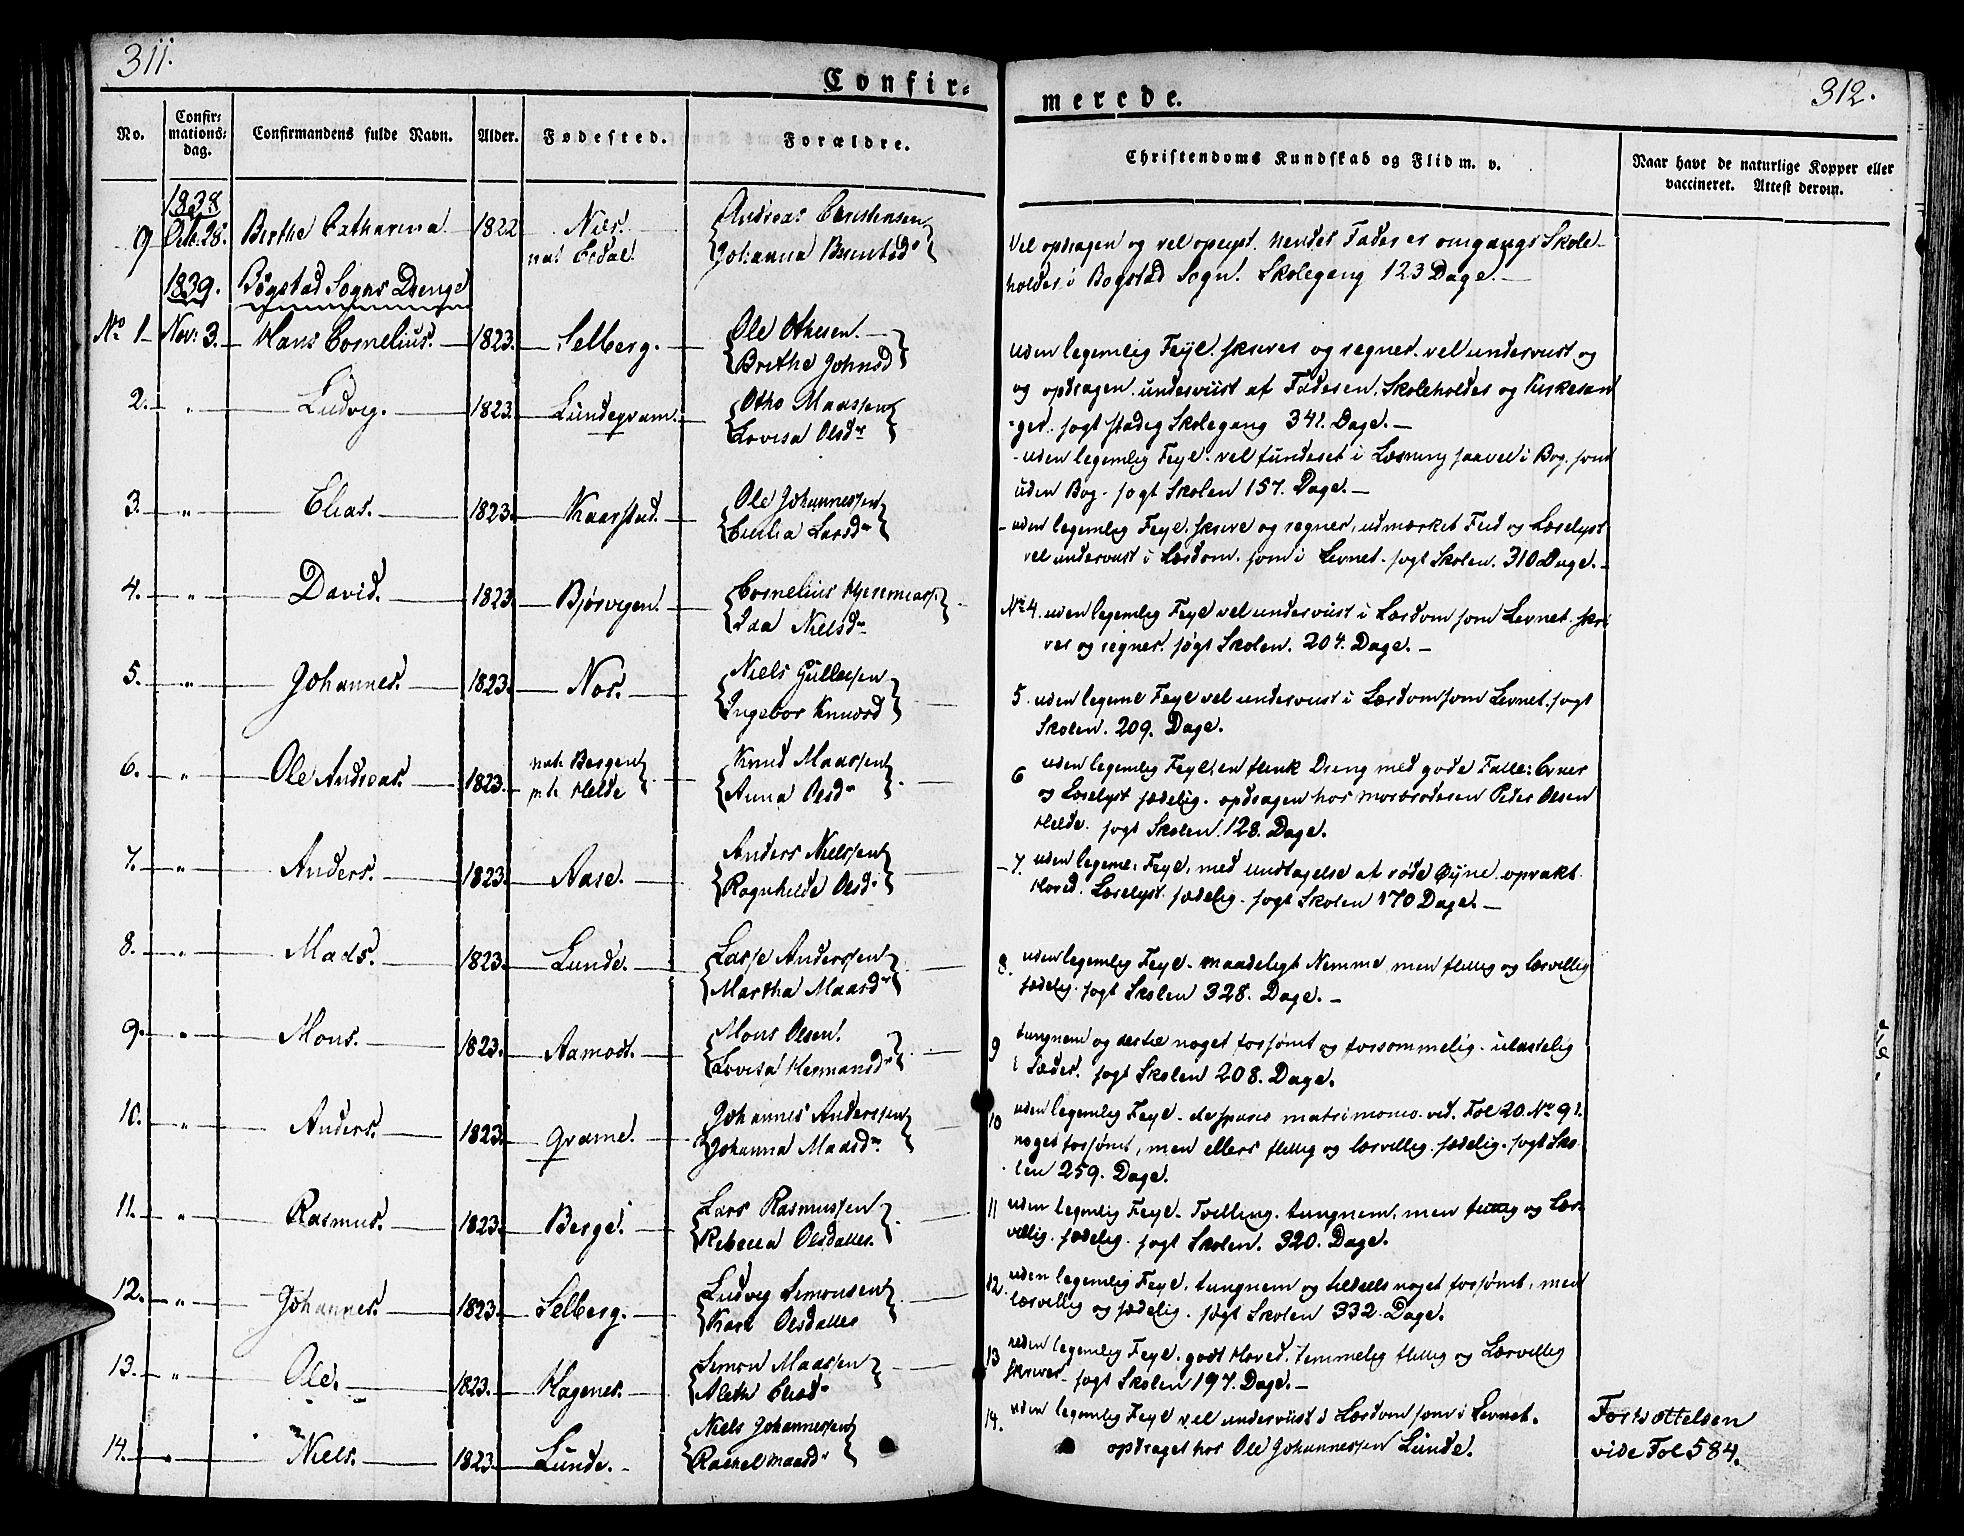 311.
Confir=
No.
Confir= mations= dag.
Confirmandens fulde Navn.
Alder.
Fødested.
Forældre.
1838
9 Oct. 28. Berthe Catharina 1822 Næs. Andreas Christensen
nat. Eedal. Johanna Berntsd.
1839. Bøgstad Sogns Drenge
No 1 Nov: 3. Hans Cornelius. 1823. Selberg. Ole Othesen.
Brithe Johnsd
2. " Ludvig. 1823. Lundegram. Otho Maassen
Lovisa Olsdr
3. " Elias. 1823. Kaarstad. Ole Johannessen
Cecilia Larsdr
4. " David. 1823. Bjørvigen. Cornelius
Ida Nielsdr
5. " Johannes. 1823. Nos. Niels Gullessen
Ingebor Knudsd
6. " Ole Andreas. 1823. nat. Bergen Knud Maassen
pt. Helde Anna Olsdr
7. " Anders. 1823. Aase. Anders Nielssen
Ragnhilde Olsd.
8. " Mads. 1823. Lunde. Lasse Anderssen
Martha Maasdr
9. " Mons. 1823. Aamodt. Mons Olsen.
Lovisa Hermansdr
10. " Anders. 1823. Grame. Johannes Anderssen
Johanna Maasdr
11. " Rasmus. 1823. Berge. Lars Rasmussen
Rebecca Olsdatter.
12. " Johannes. 1823. Selberg. Ludvig Simonsen
Kari Olsdatter
13. " Ole. 1823. Hagenes. Simon Maassen
Aleth Eliasdr
14. " Niels. 1823. Lunde. Niels Johannessen
Rachel Maasdr
312.
merede.
Christendoms Kundskab og Flid m. v.
Naar havt de naturlige Kopper eller
vaccineret. Attest derom.
Vel opdragen og vel oplyst. hendes Fader er omgangs Skole-
holder i Bogstad Sogn. Skolegang 123 Dage.
uden legemlig Feyl. skriver og regner. vel underviist og
og opdragen. underviist af Faderen, Skoleholder og Kirkesan
ger. søgt stadig Skolegang 341. Dage.
uden legemlig Feyl. vel funderet i Læsning saavel i Bog. som
uden Bog. søgt Skolen 157. Dage.
uden legemlig Feyl. skrive og regner, udmærket Flid og Læselyst
vel underviist i Lærdom. som i Levnet. søgt Skolen. 310 Dage.
No 4. uden legemlig Feyl vel underviist i Lærdom som Levnet. skri
ver og regner. søgt Skolen. 204. Dage.
5. uden legeml Feyl vel underviist i Lærdom som Levnet. søgt
Skolen. 209. Dage.
6 uden legemlig Feyl, en flink Dreng med gode Evner
og Læselyst sædelig. opdragen hos Morbroderen Peder Olsen
Helde. søgt Skolen. 128. Dage.
7. uden legeml: Feyl, med undtagelse af røde Øyne. opvakt
Hoved. Læselyst. sædelig. søgt Skolen 170 Dage.
8. uden legemlig Feyl. maadeligt Nemme men flittig og lærvillig
sædelig. søgt Skolen 328. Dage.
9 tungnem og dertil noget forsømt og forsømmelig. ulastelig
i Sæder. søgt Skolen 208. Dage.
10 uden legemlig Feyl. matrimonio. vid. Fol 20. No 91.
noget forsømt, men ellers flittig og lærvillig. sædelig. søgt Sko
len 259. Dage.
11 uden legemlig Feyl. Tvilling. tungnem, men flittig og Lær
villig. sædelig. søgt Skolen. 320. Dage.
12. uden legemlig Feyl. tungnem og tildeels noget forsømt, men
lærvillig og sædelig. søgt Skolen 332 Dage.
13 uden legemlig Feyl. godt Hoved. temmelig flittig og Lærvillig
skriver. søgt Skolen 197. Dage.
14. uden legemlig Feyl vel underviist i Lærdom som i Levnet.
opdraget hos Ole Johannessen Lunde.
Fortsættelsen
vide Fol 584.